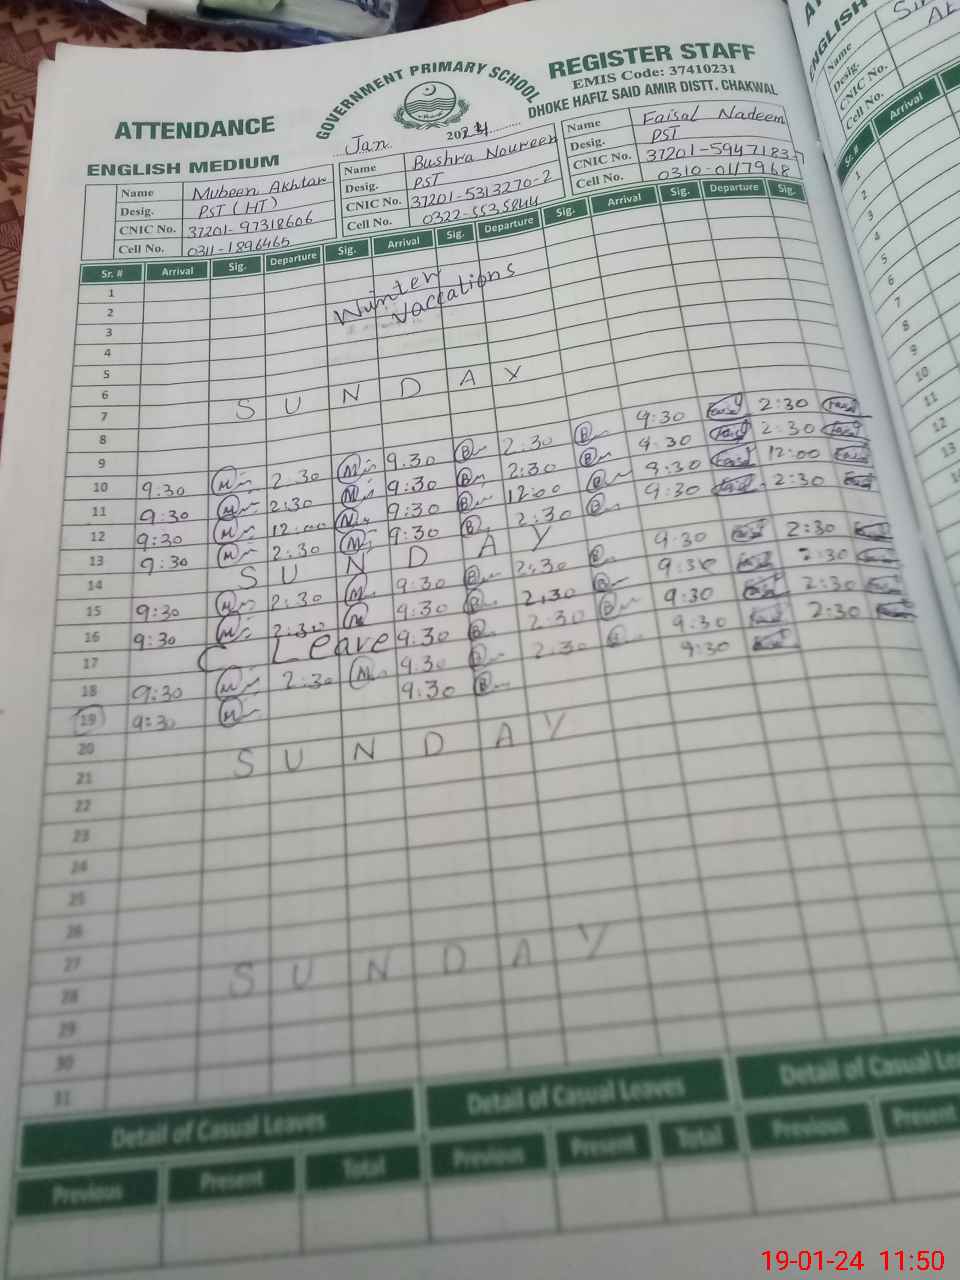 GOVERNMENT PRIMARY SCHOOL
REGISTER STAFF
EMIS Code: 37410231
DHOKE HAFIZ SAID AMIR DISTT. CHAKWAL
ATTENDANCE
Jan. 2024
ENGLISH MEDIUM
Name Mubeen Akhtar
Desig. PST (HT)
CNIC No. 37201-97318606
Cell No. 0311-1896465
Name Bushra Noureen
Desig. PST
CNIC No. 37201-5313270-2
Cell No. 0322-5535844
Name Faisal Nadeem
Desig. PST
CNIC No. 37201-5947183-7
Cell No. 0310-0117968
Sr. # Arrival Sig. Departure Sig. Arrival Sig. Departure Sig. Arrival Sig. Departure Sig.
1
2 Winter
3 Vaccations
4
5
6
7 SUNDAY
8
9
10 9:30 2:30 9:30 2:30 9:30 2:30
11 9:30 2:30 9:30 2:30 9:30 2:30
12 9:30 12:00 9:30 12:00 9:30 12:00
13 9:30 2:30 9:30 2:30 9:30 2:30
14 SUNDAY
15 9:30 2:30 9:30 2:30 9:30 2:30
16 9:30 2:30 9:30 2:30 9:30 2:30
17 C Leave 9:30 2:30 9:30 2:30
18 9:30 2:30 9:30 2:30 9:30 2:30
19 9:30 9:30 9:30
20
21 SUNDAY
22
23
24
25
26
27
28 SUNDAY
29
30
31
Detail of Casual Leaves Detail of Casual Leaves Detail of Casual Le
Previous Present Total Previous Present Total Previous Present
ENGLISH
Name
Desig.
CNIC No.
Cell No.
Sr. # Arrival
1
2
3
4
5
6
7
8
9
10
11
12
13
19-01-24 11:50